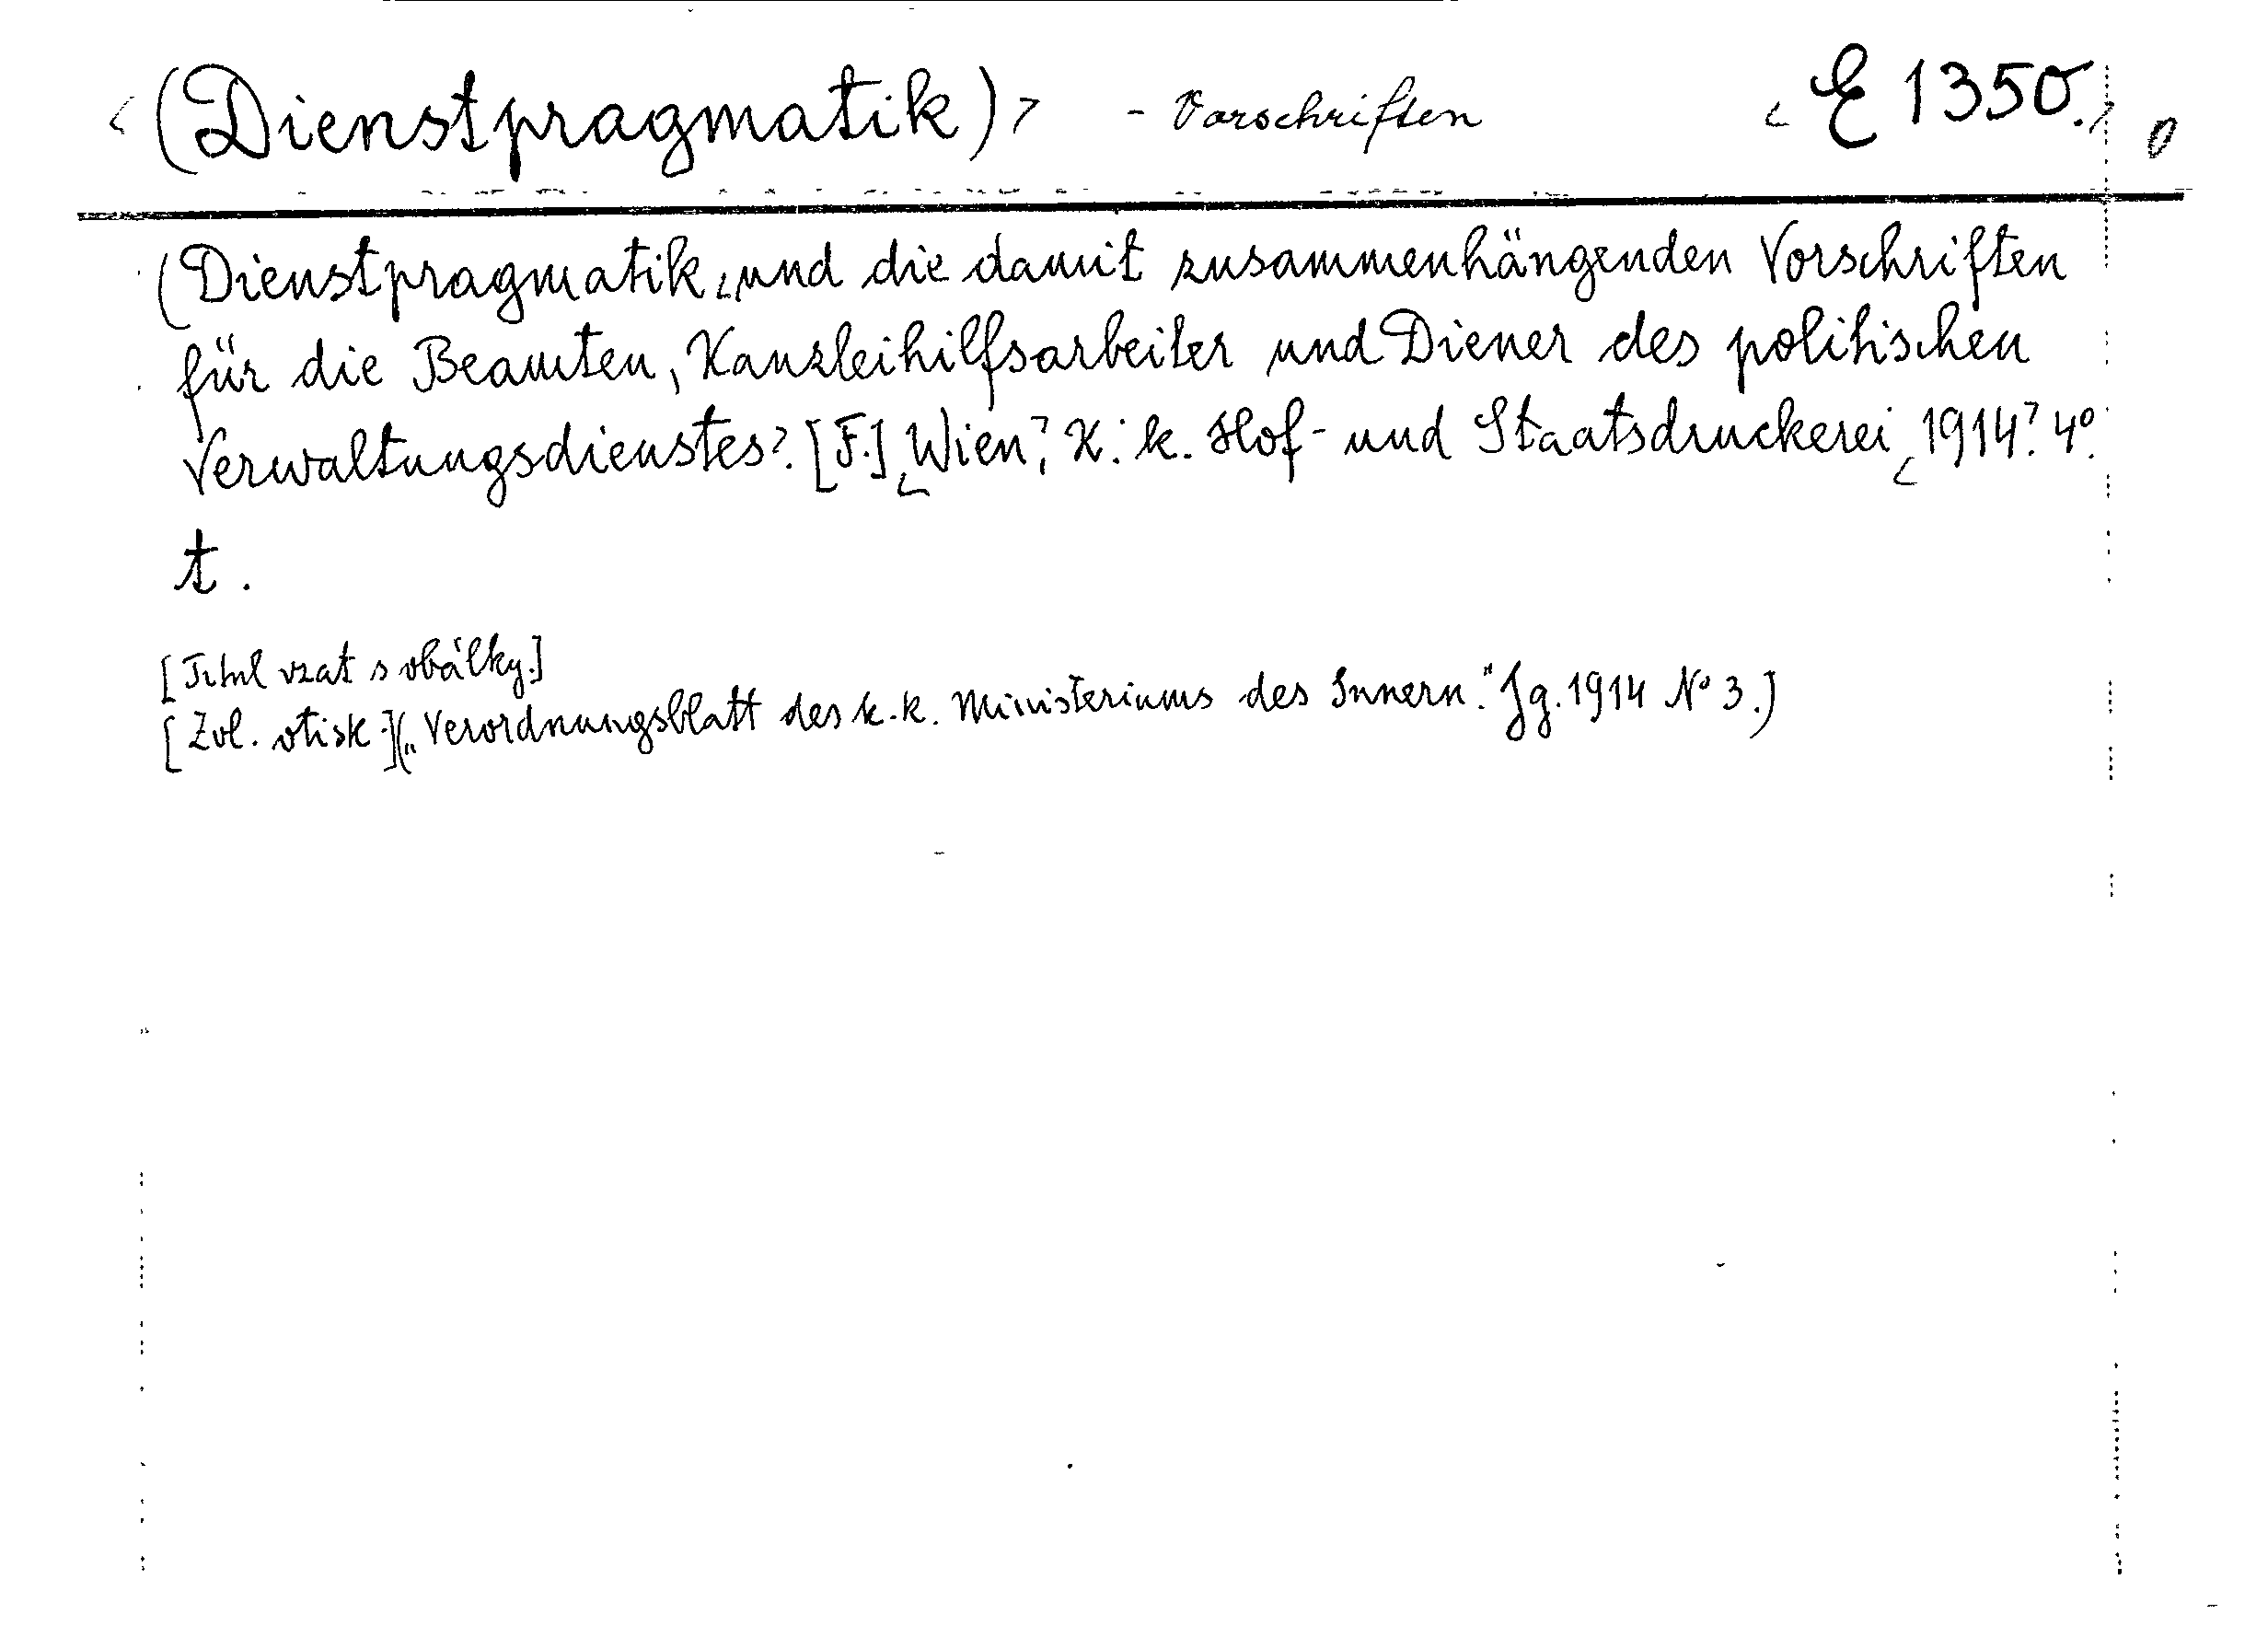 (Dienstpragmatik) - Vorschriften E 1350. 0
(Dienstpragmatik und die damit zusammenhängenden Vorschriften
für die Beamten, Kanzleihilfsarbeiter und Diener des politischen
Verwaltungsdienstes. [F.] Wien, K. k. Hof- und Staatsdruckerei 1914. 4°.
t.
[Titul vzat s obálky.]
[Zvl. otisk.] („Verordnungsblatt des k. k. Ministeriums des Innern." Jg. 1914 No 3.)